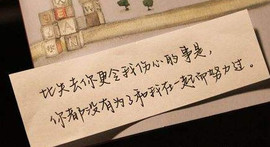 比失去你更令我伤心的事是,
你都没有为了和我在一起而努力过。